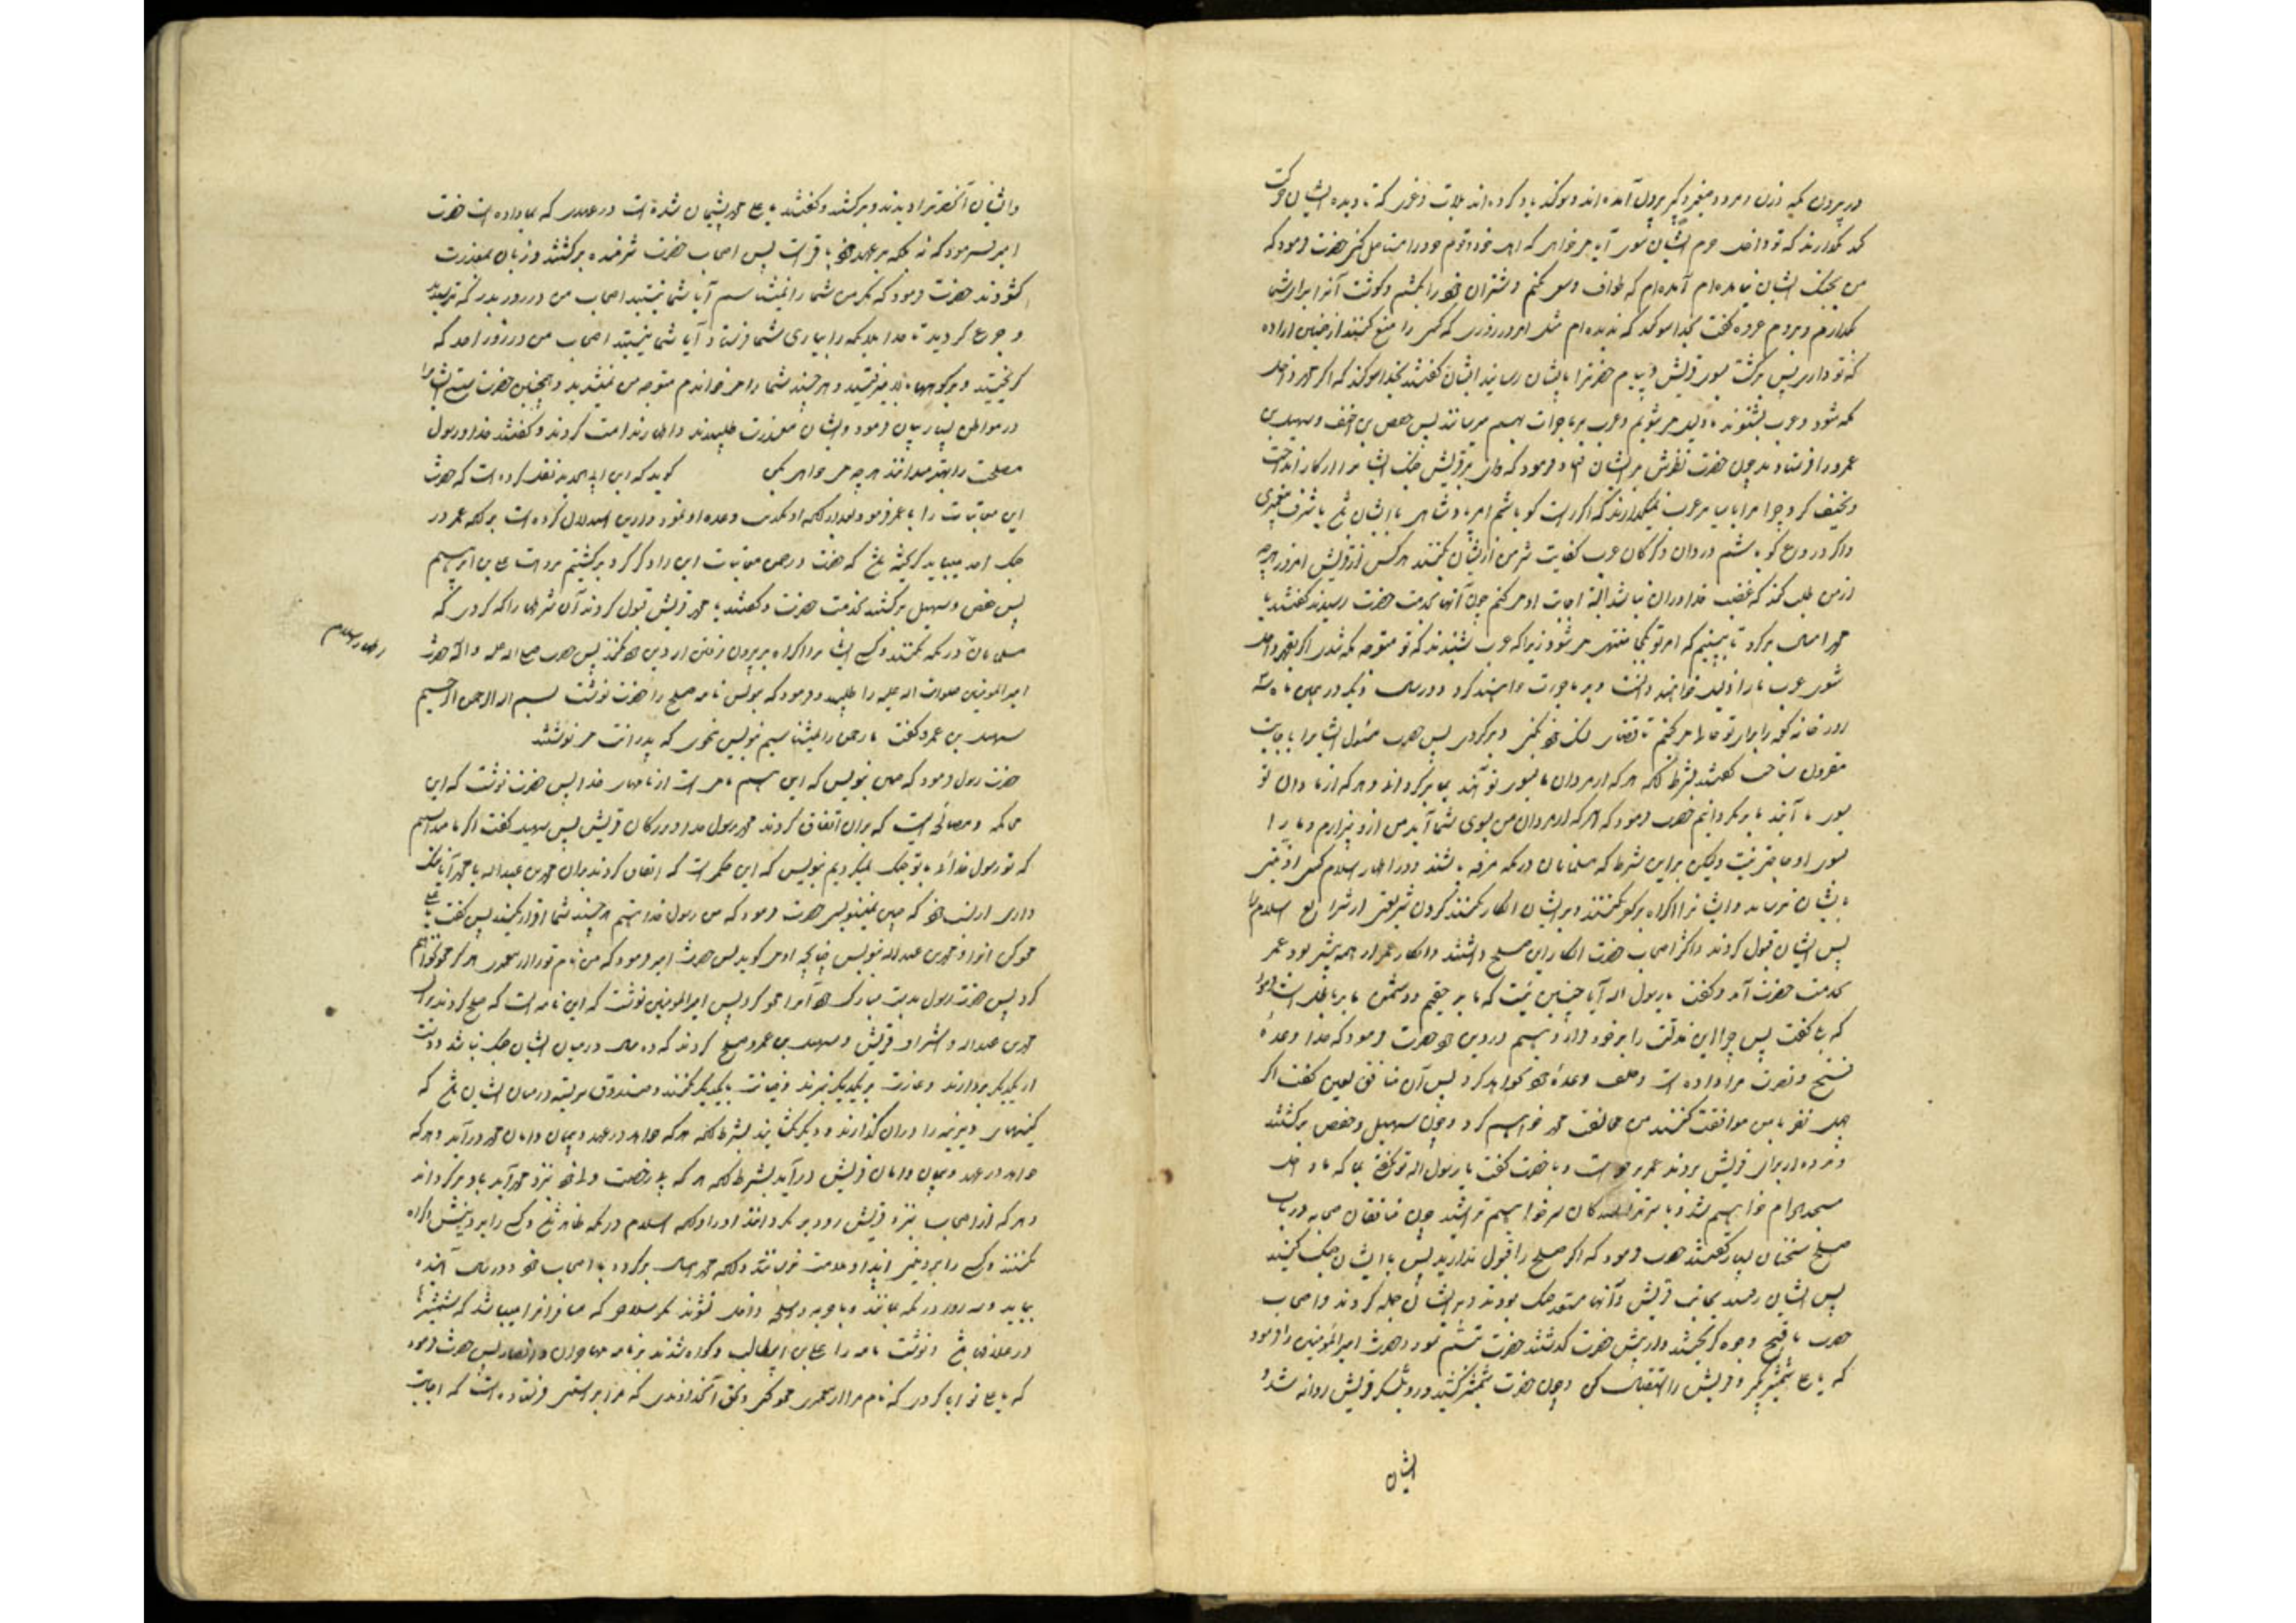 در بیرون مکه از زن و مرد و صغیر و کبیر بیرون آمده اند و سوگند یاد کرده اند بلات و عزی که تا دیده ایشان حرکت
کند نگذارند که تو داخل حرم ایشان شوی آیا میخواهی که اهل خود و قوم خود را مستأصل کنی حضرت فرمود که
من بجنک ایشان نیامده ام آمده ام که طواف و سعی بکنم و شتران خود را بکشم و گوشت آنرا برای شما
بگذارم و بروم عروه گفت بخدا سوگند که ندیده ام مثل امروز روزی که کسی را منع کنند از چنین اراده
که تو داری پس برگشت بسوی قریش و پیام حضرترا بایشان رسانید ایشان گفتند بخدا سوگند که اگر محمد داخل
مکه شود و عرب بشنوند ما ذلیل میشویم و عرب بر ما جرات بهم میرسانند پس حفص بن احنف و سهیل بن
عمرو را فرستادند چون حضرت نظرش بر ایشان افتاد فرمود که وای بر قریش جنک ایشانرا از کار انداخت
و نحیف کرد چرا مرا با سایر عرب نمیگذارند که اگر راست گو باشم امر پادشاهی با ایشان باشد با شرف پیغمبری
و اگر دروغ گو باشم دزدان و گرکان عرب کفایت شر من از ایشان بکنند هر کس از قریش امروز هر چه
از من طلب کند که غضب خدا در آن نباشد البته اجابت او میکنم چون آنها بخدمت حضرت رسیدند گفتند یا
محمد امسال برگرد تا ببینیم که امر تو بکجا منتهی میشود زیرا که عرب شنیدند که تو متوجه مکه شدی اگر بقهر داخل
شوی عرب ما را ذلیل خواهند دانست و بر ما جرات خواهند کرد و در سال دیگر در همین ماه سه
روز خانه کعبه را برای تو خالی میکنیم تا قضای نسک خود بکنی و برگردی پس حضرت مسئول ایشانرا باجابت
مقرون ساخت گفتند بشرط آنکه هر که از مردان ما بسوی تو آیند بما برگردانی و هر که از مردان تو
بسوی ما آیند ما برنگردانیم حضرت فرمود که هر که از مردان من بسوی شما آید من ازو بیزارم و مرا
بسوی او حاجتی نیست ولیکن براین شرط که مسلمانان در مکه مرفه باشند و در اظهار اسلام کسی اذیتی
بایشان نرساند و ایشانرا اکراه بر کفر نکنند و بر ایشان انکار نکنند کردن شریعتی از شرایع اسلام را
پس ایشان قبول کردند و اکثر اصحاب حضرت انکار این صلح داشتند و انکار عمر از همه بیشتر بود عمر
بخدمت حضرت آمد و گفت یا رسول الله آیا چنین نیست که ما بر حقیم و دشمن ما بر باطل است فرمود
که بلی گفت پس چرا این مذلت را بر خود قرار دهیم در دین خود حضرت فرمود که خدا وعده
فتح و نصرت مرا داده است و خلف وعده خود نخواهد کرد پس آن منافق لعین گفت اگر
چهل نفر با من موافقت کنند من مخالفت محمد خواهم کرد و چون سهیل و حفص برگشتند
مسجد الحرام خواهیم شد و با سر تراشیدگان سر خواهیم تراشید چون منافقان صحابه در باب
صلح سخنان بسیار گفتند حضرت فرمود که اگر صلح را قبول ندارید پس با ایشان جنک کنید
پس ایشان رفتند بجانب قریش و آنها مستعد جنک بودند و بر ایشان حمله کردند و اصحاب
حضرت با قبح وجوه گریختند و از پیش حضرت گذشتند حضرت تبسم نمود و حضرت امیرالمؤمنین را فرمود
که یا علی شمشیر بگیر و قریش را استقبال کن و چون حضرت شمشیر کشید و رو بلشکر قریش روانه شد و
ایشان
و ایشان آنحضرترا دیدند و برگشتند و گفتند یا علی محمد پشیمان شده است در عهدی که بما داده است حضرت
امیر فرمود که نه بلکه بر عهد خود باقی است پس اصحاب حضرت شرمنده برگشتند و زبان بمعذرت
گشودند حضرت فرمود که مگر من شما را نمیشناسم آیا شما نیستید اصحاب من در روز بدر که ترسیدید
و جزع کردید تا خدا ملائکه را بیاری شما فرستاد آیا شما نیستید اصحاب من در روز احد که
گریختید و بر کوهها بالا میرفتید و هر چند شما را میخواندم متوجه من نمیشدید و همچنین حضرت سستی ایشانرا
در مواطن بسیار بیان فرمود و ایشان معذرت طلبیدند و اظهار ندامت کردند و گفتند خدا و رسول
مصلحت را بهتر میدانند هر چه میخواهی بکن گوید که ابن ابی الحدید نقل کرده است که حضرت
این معاتبات را با عمر فرمود بعد از آنکه او تکذیب وعده او نمود و از این استدلال کرده است بر آنکه عمر در
جنک احد میباید گریخته باشد که حضرت در ضمن معاتبات این را ذکر کرد برگشتیم بروایت علی بن ابراهیم
پس حفص و سهیل برگشتند بخدمت حضرت و گفتند یا محمد قریش قبول کردند آن شرطی را که کردی که
اظهار اسلام
مسلمانان در مکه بکنند و کسی ایشانرا اکراه بر بیرون رفتن از دین خود نکند پس حضرت صلی الله علیه و آله حضرت
امیرالمؤمنین صلوات الله علیه را طلبید و فرمود که بنویس نامه صلح را حضرت نوشت بسم الله الرحمن الرحیم
سهیل بن عمرو گفت ما رحمن را نمیشناسیم بنویس نحوی که پدرانت مینوشتند
حضرت رسول فرمود که همان بنویس که این هم نامی است از نامهای خدا پس حضرت نوشت که این
محاکمه و مصالحه ایست که بران اتفاق کردند محمد رسول خدا و بزرگان قریش پس سهیل گفت اگر ما میدانستیم
که تو رسول خدائی با تو جنک نمیکردیم بنویس که این حکمی است که اتفاق کردند بران محمد بن عبدالله یا محمد آیا ننک
داری از نسب خود که چنین نمینویسی حضرت فرمود که من رسول خدا هستم هر چند شما اقرار نکنید پس گفت یا علی
محو کن انرا و محمد بن عبدالله بنویس چنانچه او میگوید پس حضرت امیر فرمود که من نام تو را از پیغمبری هرگز محو نخواهم
کرد پس حضرت رسول بدست مبارک خود آنرا محو کرد پس امیرالمؤمنین نوشت که این نامه است که صلح کردند بران
محمد بن عبدالله و اشراف قریش و سهیل بن عمرو صلح کردند که ده سال در میان ایشان جنک نباشد و دست
از یکدیگر بردارند و غارت بر یکدیگر نبرند و خیانت با یکدیگر نکنند و صندوق سربسته در میان ایشان باشد که
کینهای دیرینه را دران گذارند و دیگر نگشایند بشرط آنکه هر که خواهد در عهد و پیمان و امان محمد درآید و هر که
خواهد در عهد و پیمان و امان قریش درآید بشرط آنکه هر که بی رخصت ولی خود بنزد محمد آید باو برگرداند
و هر که از اصحاب بنزد قریش رود برنگردانند او را و آنکه اسلام در مکه ظاهر باشد و کسی را بر دینش اکراه
نکنند و کسی را بر دینش ایذا و ملامت نرسانند و آنکه محمد امسال برگردد با اصحاب خود و در سال آینده
بیاید و سه روز در مکه بمانند و با حربه و اسلحه داخل نشوند مگر سلاحی که مسافرانرا میباشد که شمشیرها
در غلاف باشد و نوشت نامه را علی بن ابیطالب و گواه شدند بر نامه مهاجران و انصار پس حضرت فرمود
که یا علی تو ابا کردی که نام مرا از پیغمبری محو کنی بحق آن خداوندی که مرا براستی فرستاده است که اجابت